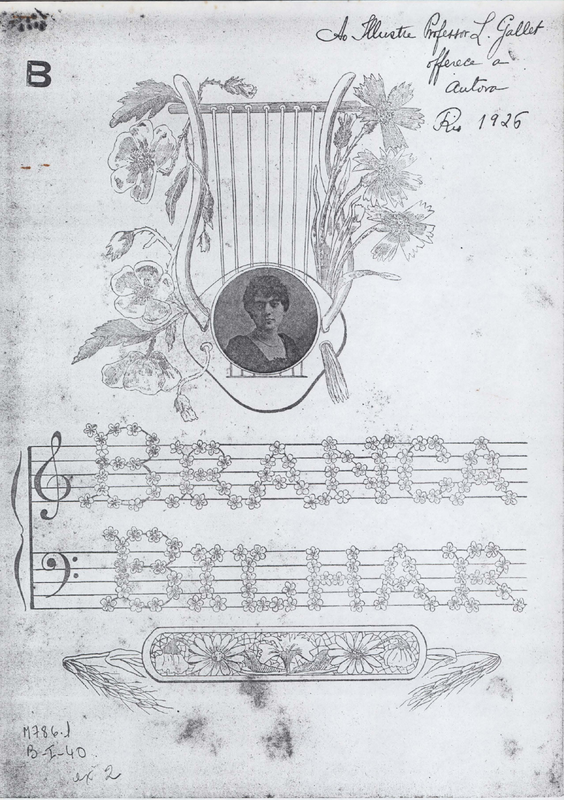 B
Ao Illustre Professor L. Gallet
offerece a
autora
Rio 1926
BRANCA
BILHAR
M786.1
B-I-40
ex 2